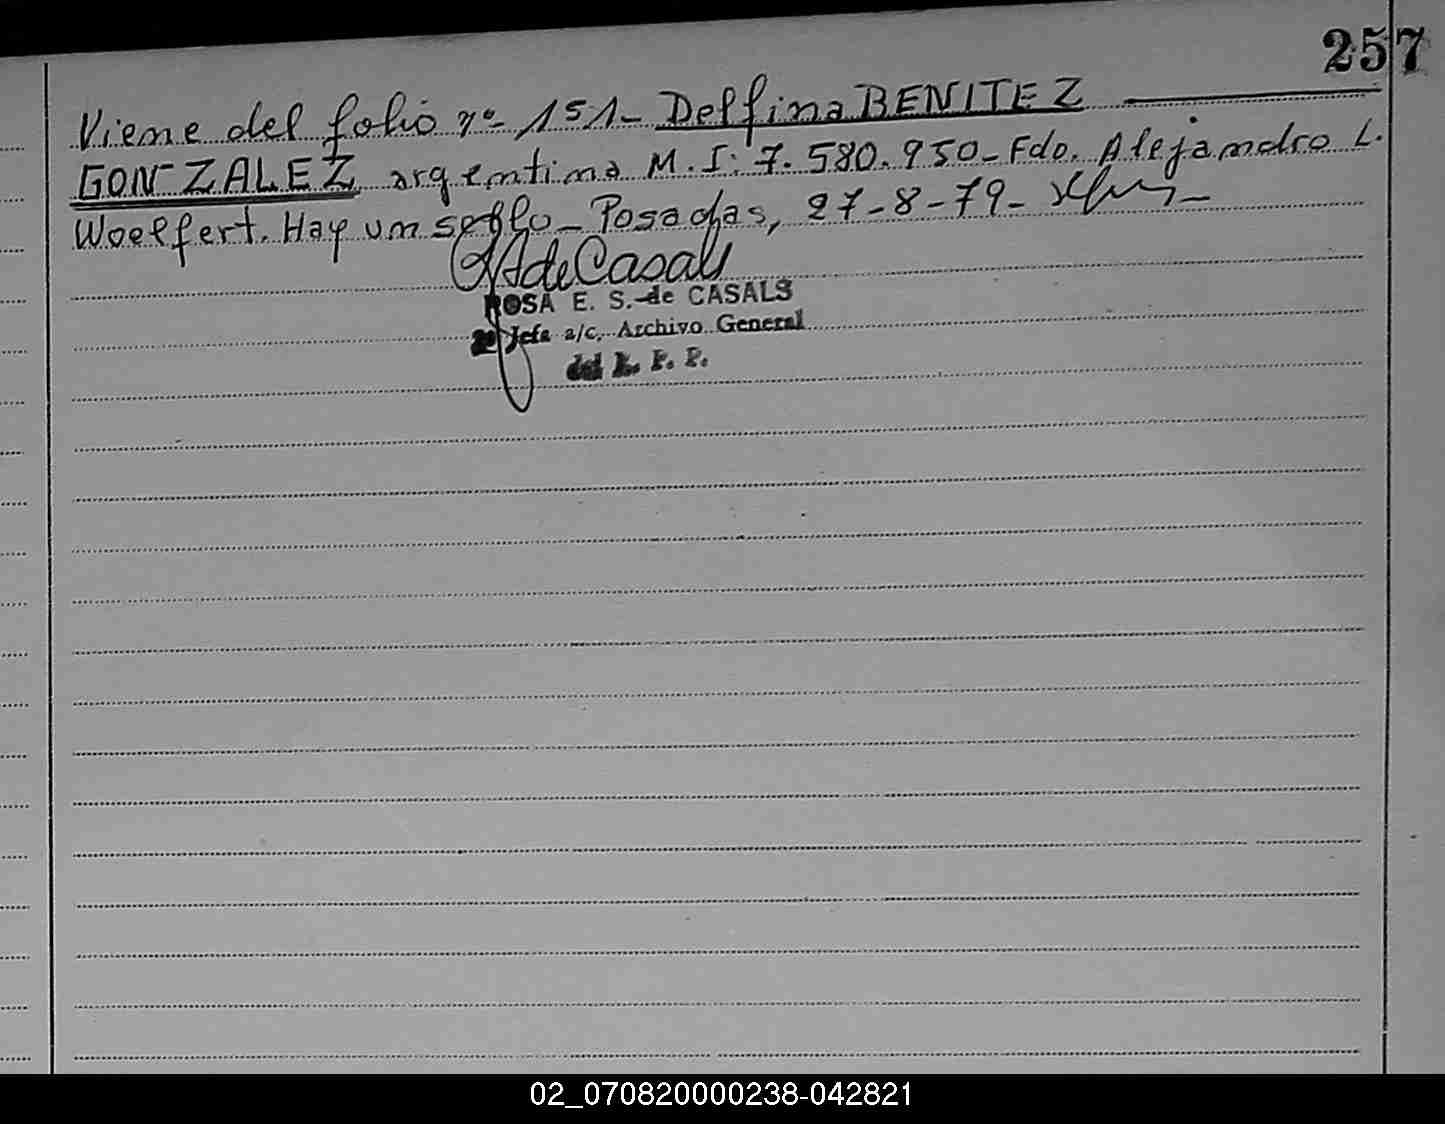 257
Viene del folio nº 151- Delfina BENITEZ
GONZALEZ argentina M.I: 7.580.950- Fdo. Alejandro L.
Woelfert. Hay un sello - Posadas, 27-8-79-
de Casals
ROSA E. S. de CASALS
Jefa a/c. Archivo General
del R. P. P.
02_070820000238-042821